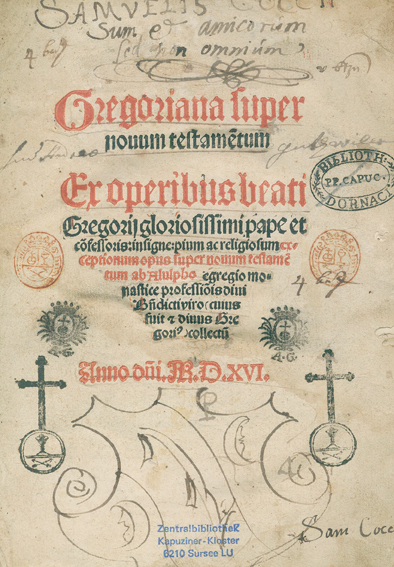 SAMVELIS COCCII
Sum et amicorum
sed non omnium,
Gregoriana super
nouum testamētum
Ex operibus beati
Gregorij gloriosissimi pape et
cōfessoris: insigne: pium ac religiosum ex-
ceptionum opus super nouum testamē
tum ab Alulpho egregio mo-
nastice professiōis diui
Bn̄dicti viro: cuius
fuit ⁊ diuus Gre
goriꝰ collectū
BIBLIOTH:
P.P. CAPUC.
DORNACI
A.G.
Anno dn̄i. M.D.XVI.
Sam Cocc
Zentralbibliothek
Kapuziner-Kloster
6210 Sursee LU